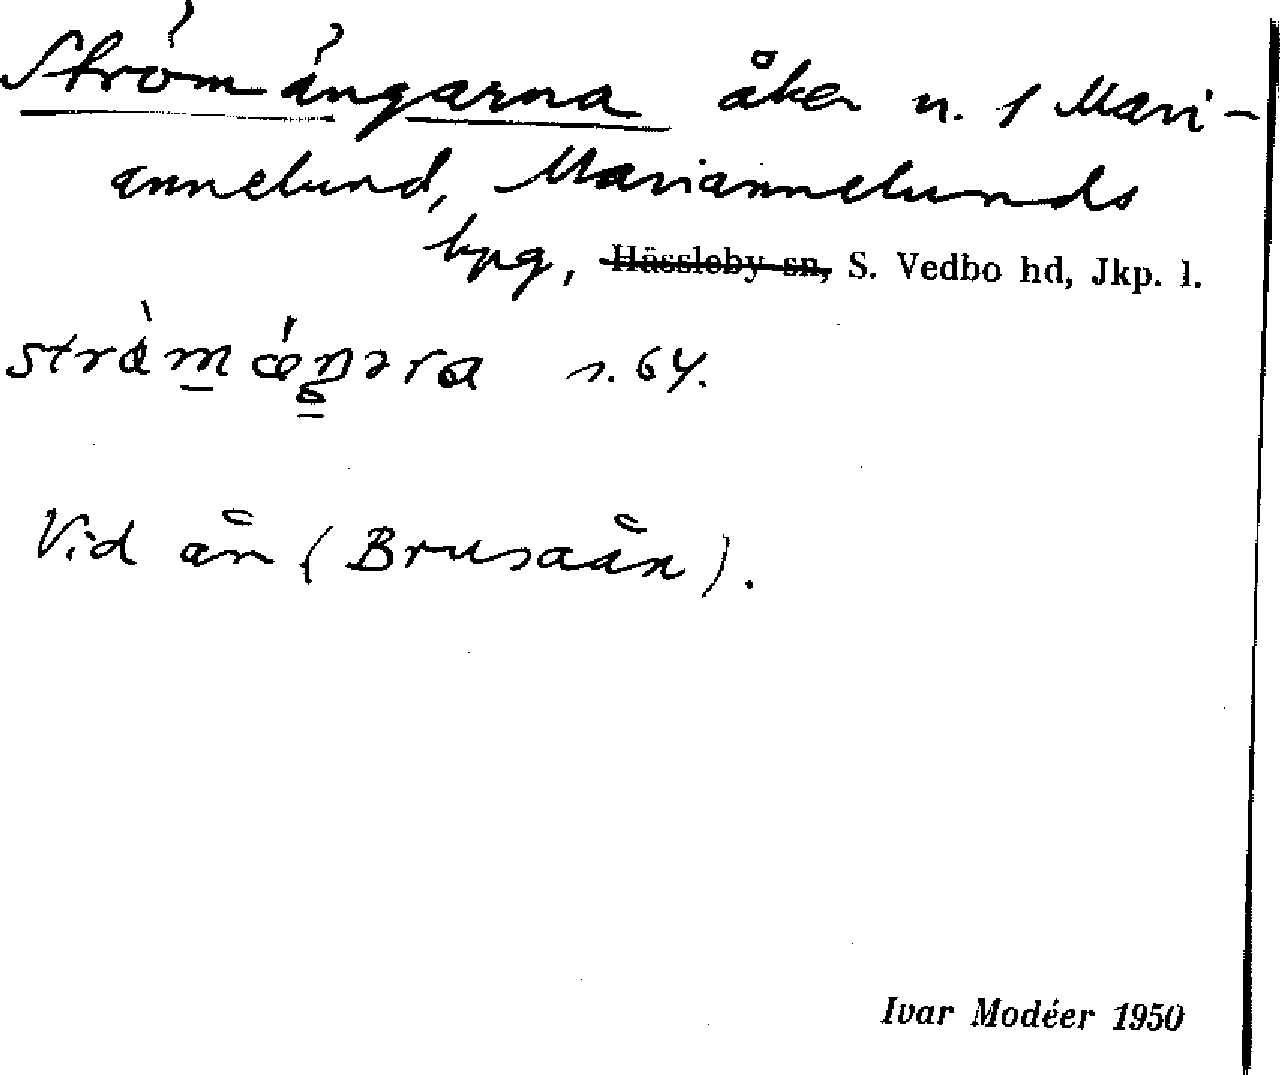 Strömängarna åker n. 1 Mari-
annelund, Mariannelunds
kpg, Hässleby sn, S. Vedbo hd, Jkp. l.
s. 64.
Vid ån (Brusaån).
Ivar Modéer 1950